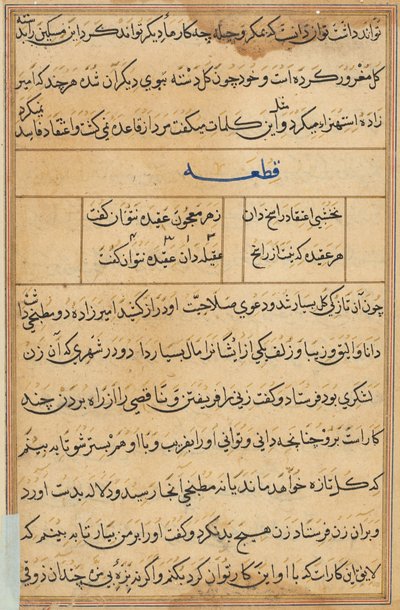 تواند دانست توان دانست که بمکر و حیله چه کارهاء دیکر تواند کرد این مسکین را بدسته
کل مغرور کرده است و خود چون کل دسته بسوی دیکران شده هر چند که امیر
زاده استهزاء میکرد و مثل این کلمات میکفت مرد از قاعده نمی کشت و اعتقاد فاسد نمیکرد
قطعه
نخشبی اعتقاد راسخ دان
زهر معجون عقیده نتوان کفت
هر عقیده که نیست راسخ
عقیله دان عقیده نتوان کفت
چون آن تازکی کل بسیار شد و دعوی صلاحیت او دراز کشید امیر زاده دو مطبخی داشت
دانا و الیق و زیبا و زلف یکی از ایشانرا مال بسیار داد و در شهری که آن زن
لشکری بود فرستاد و کفت زنی را فریفتن و ناقصی را از راه بردن چند
کار است برو چنانچه دانی و توانی او را بفریب و با او هم بستر شو تا به بینم
که کل تازه خواهد ماند یا نه مطبخی آنجا رسید و دلاله بدست آورد
و بر آن زن فرستاد زن هیچ بد نکرد و کفت او را بر من بیار تا به بینم که
لایق این کار است که با او این کار توان کرد یکنه و اکر نه بزه بی من چندان ذوقی